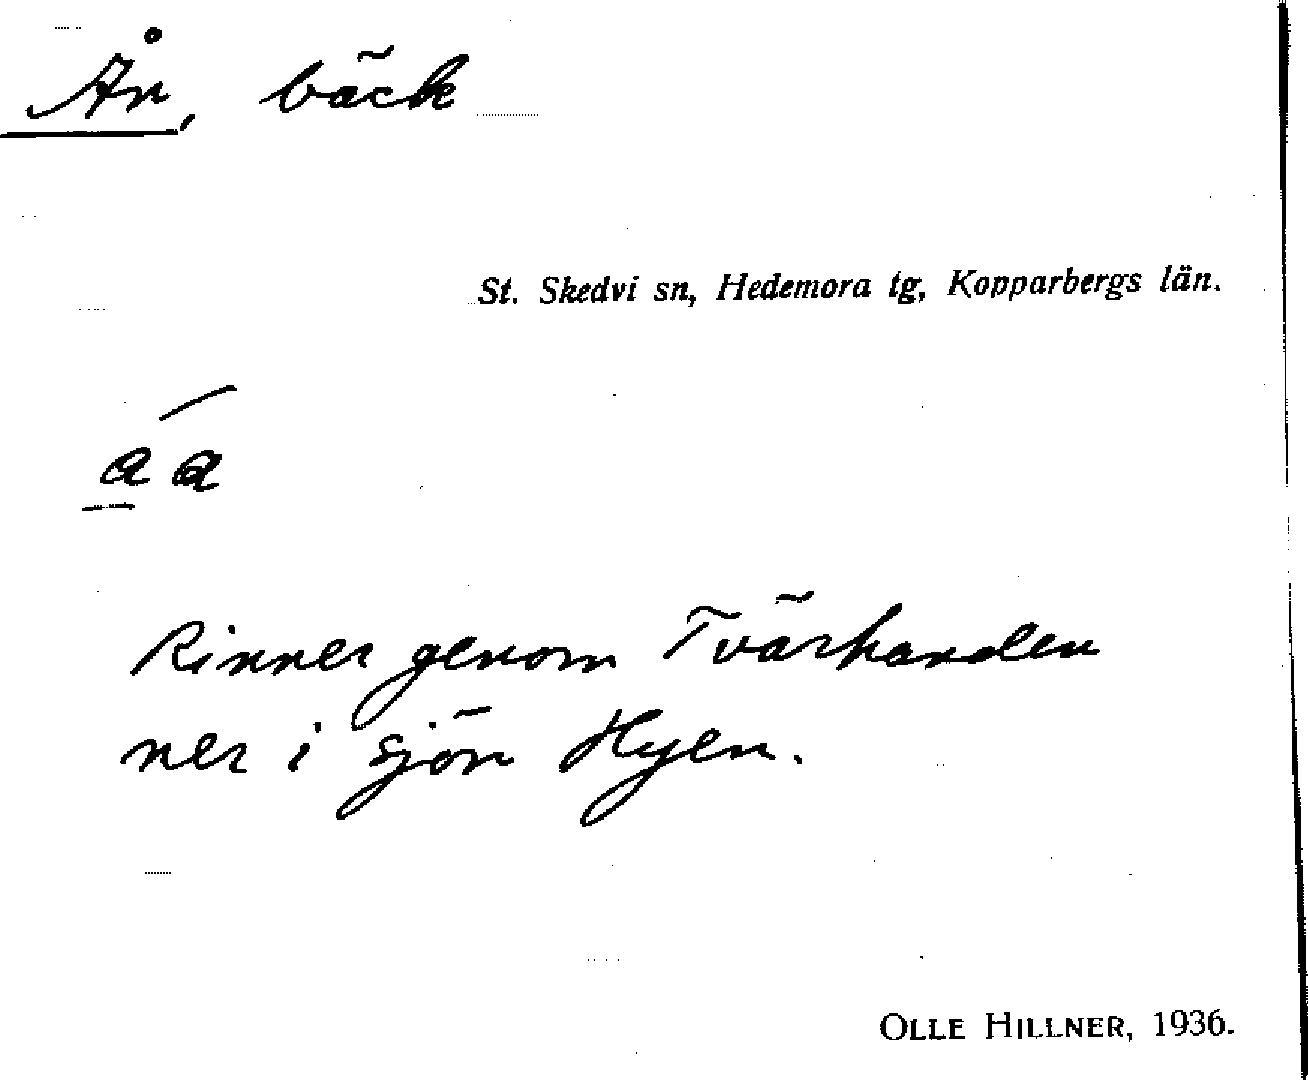 Ån, bäck
St. Skedvi sn, Hedemora tg, Kopparbergs län.
a ́a
Rinner genom Tvärhanden
ner i sjön Hyen.
OLLE HILLNER, 1936.